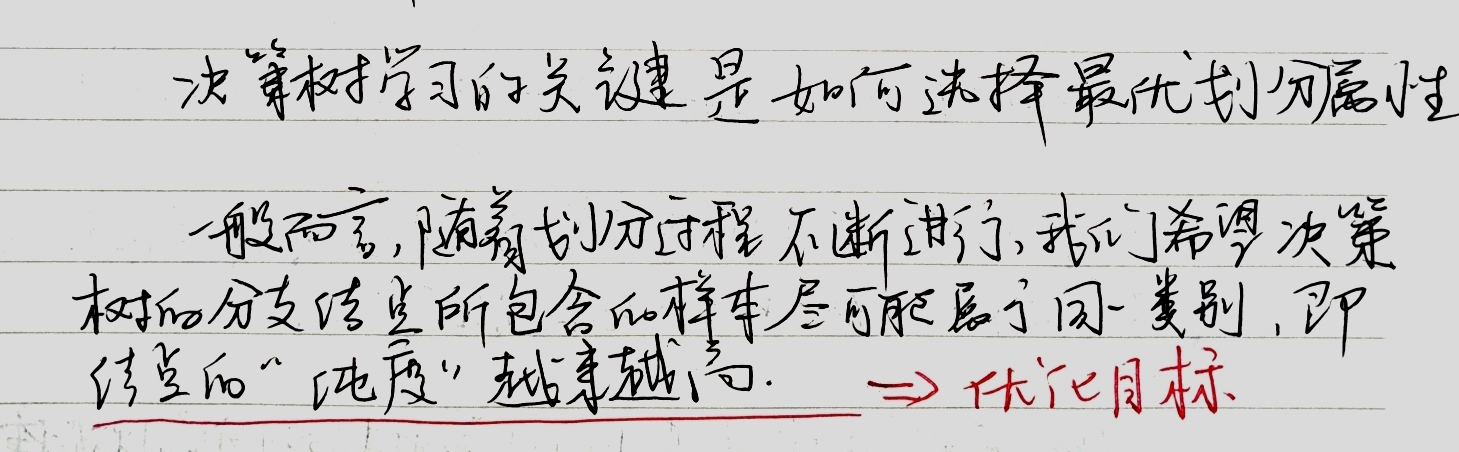 决策树学习的关键是如何选择最优划分属性
一般而言,随着划分过程不断进行,我们希望决策
树的分支结点所包含的样本尽可能属于同一类别,即
结点的“纯度”越来越高. ⇒ 优化目标.